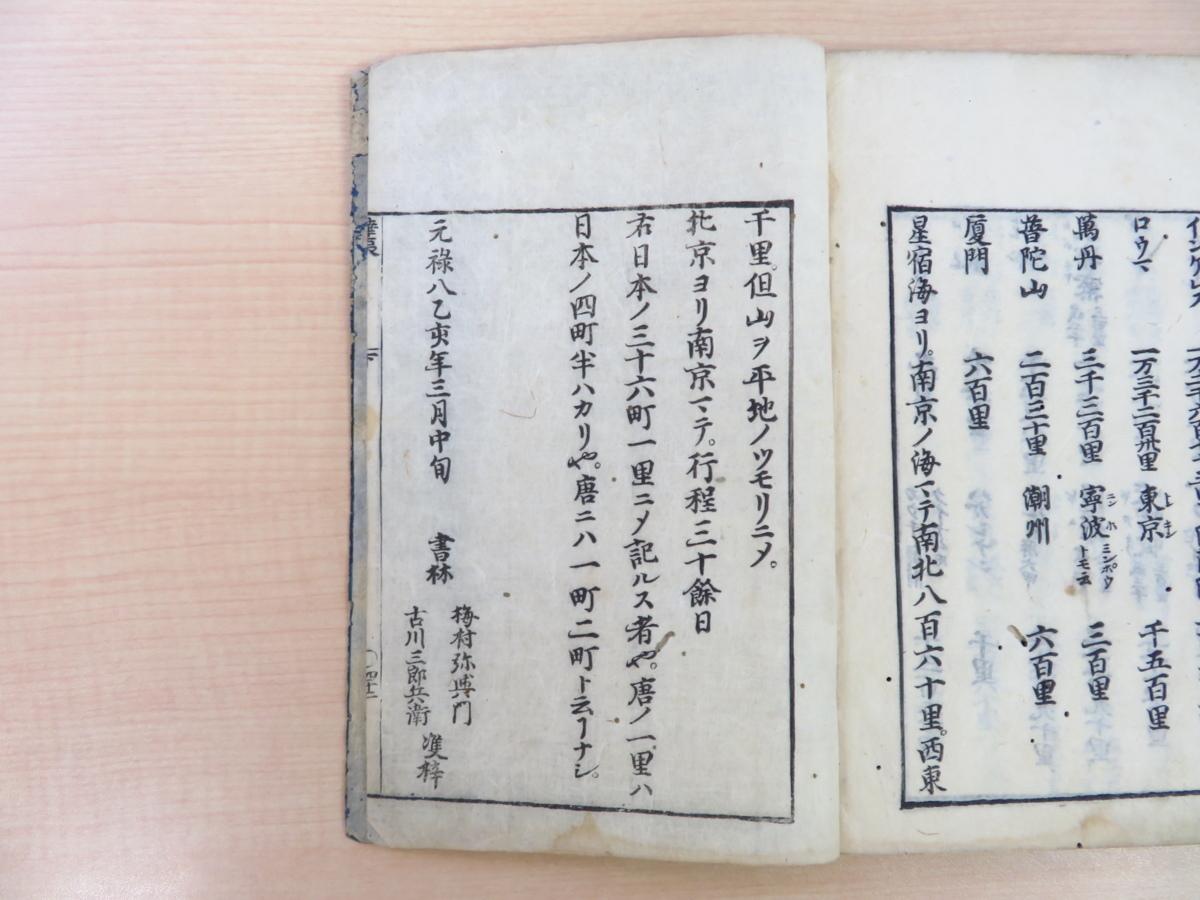 ロウマ 一万三千二百卅里 東京 トンキン 千五百里
萬丹 三千三百里 寧波 ニンハ ニンポウトモ云 三百里
普陀山 二百三十里 潮州 六百里
厦門 六百里
星宿海ヨリ。南京ノ海マテ南北八百六十里。西東
千里。但山ヲ平地ノツモリニメ。
北京ヨリ南京マテ。行程三十餘日
右日本ノ三十六町一里ニメ記ルス者也。唐ノ一里ハ
日本ノ四町半ハカリ也。唐ニハ一町二町ト云ヿナシ。
元祿八乙亥年三月中旬
書林
梅村弥右衛門
古川三郎兵衛
雙梓
下